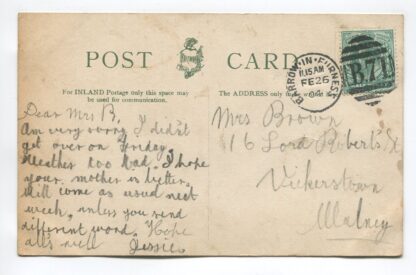 POST CARD
For INLAND Postage only this space may
be used for communication.
The ADDRESS only
BARROW-IN-FURNESS
11.15AM
FE 26
B71
Dear Mrs B,
Am very sorry I didn't
get over on Friday.
Weather too bad. I hope
your mother is better.
Will come as usual next
week, unless you send
different word. Hope
alls well
Jessie.
Mrs Brown
16 Lord Roberts St
Vickerstown
Walney